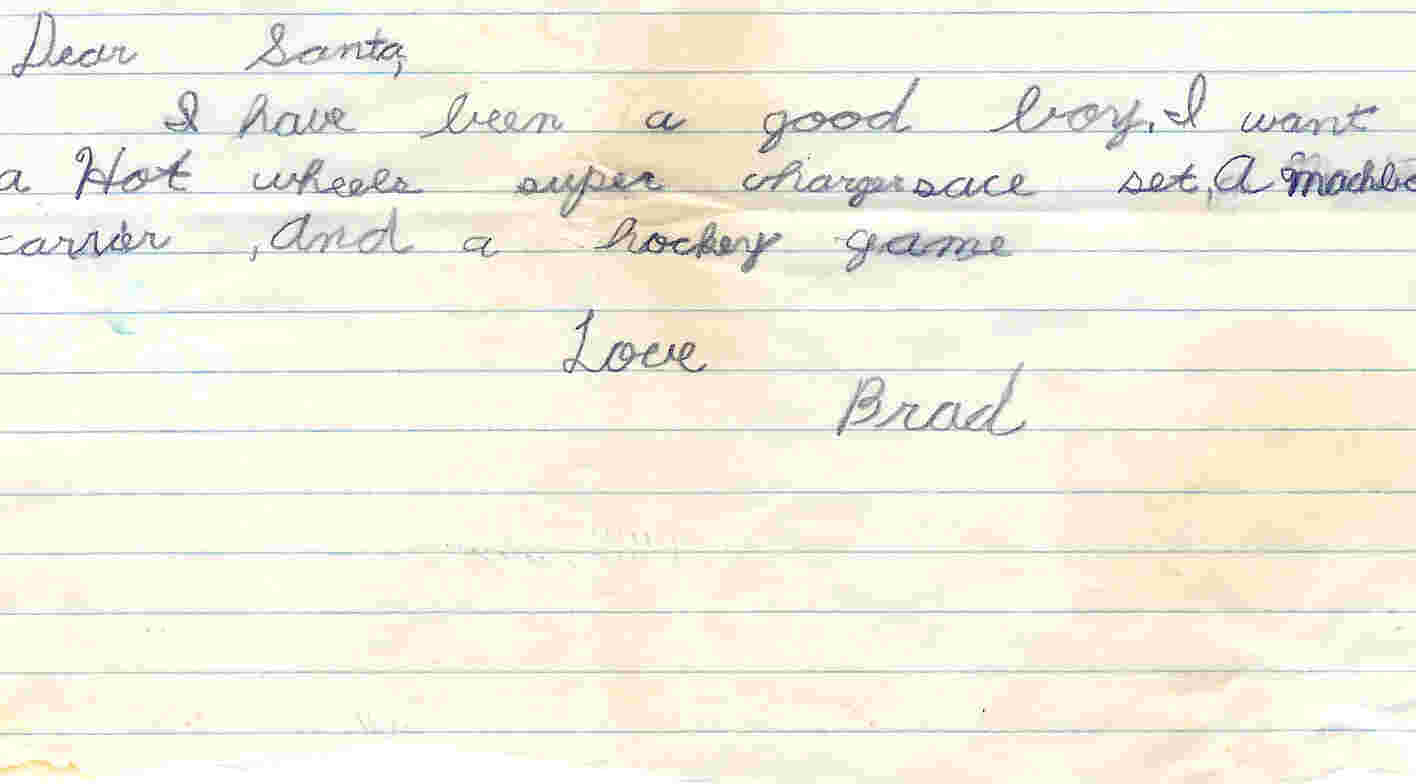 Dear Santa,
I have been a good boy. I want
a Hot wheels super charger race set, A
carrier, and a hockey game
Love
Brad